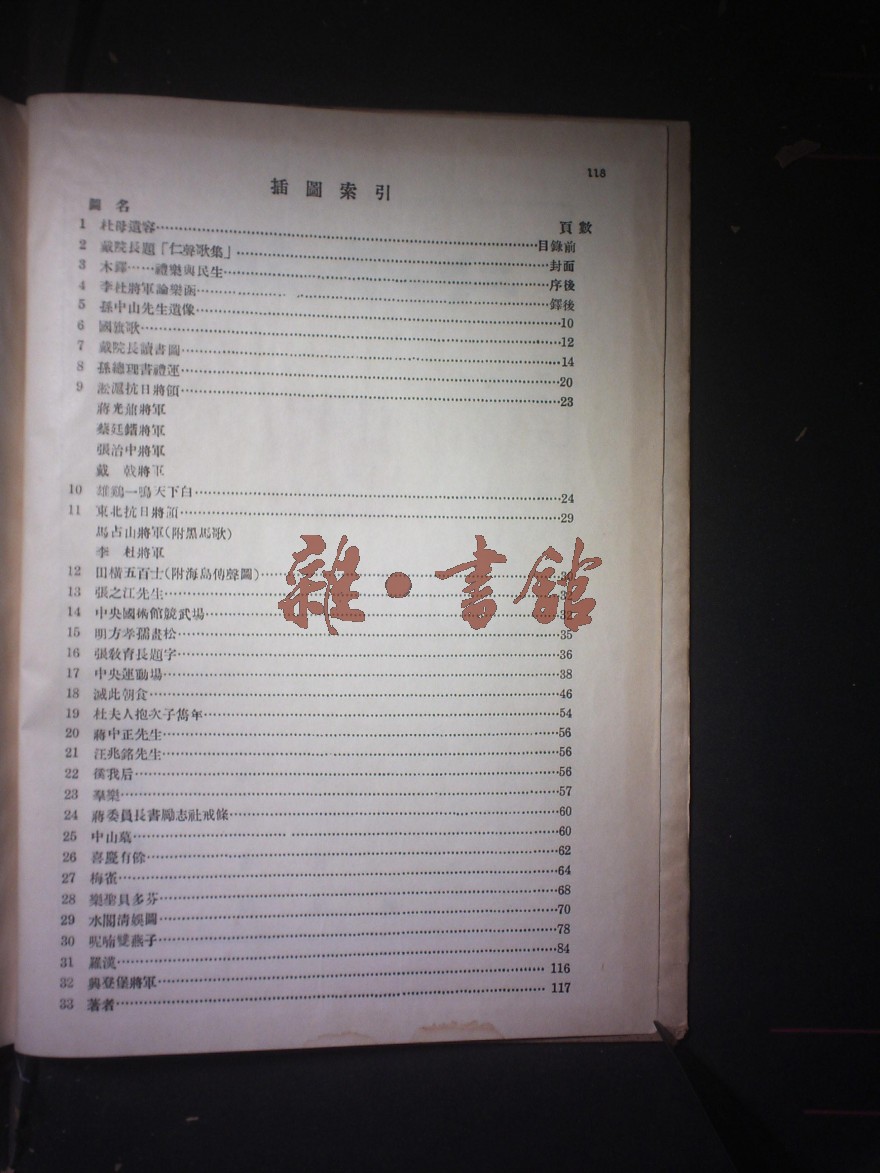 118
插圖索引
圖名 頁數
1 杜母遺容……目錄前
2 戴院長題「仁聲歌集」……封面
3 木鐸……禮樂與民生……序後
4 李杜將軍論樂函……鐸後
5 孫中山先生遺像……10
6 國旗歌……12
7 戴院長讀書圖……14
8 孫總理書禮運……20
9 淞滬抗日將領……23
蔣光鼐將軍
蔡廷鍇將軍
張治中將軍
戴 戟將軍
10 雄鷄一鳴天下白……24
11 東北抗日將領……29
馬占山將軍(附黑馬歌)
李 杜將軍
12 田橫五百士(附海島傳聲圖)……30
13 張之江先生……
14 中央國術館競武場……32
15 明方孝孺畫松……35
16 張敎育長題字……36
17 中央運動場……38
18 滅此朝食……46
19 杜夫人抱次子雋年……54
20 蔣中正先生……56
21 汪兆銘先生……56
22 徯我后……56
23 羣樂……57
24 蔣委員長書勵志社戒條……60
25 中山墓……60
26 喜慶有餘……62
27 梅雀……64
28 樂聖貝多芬……68
29 水閣清娛圖……70
30 呢喃雙燕子……78
31 羅漢……84
32 興登堡將軍……116
33 著者……117
雜·書館